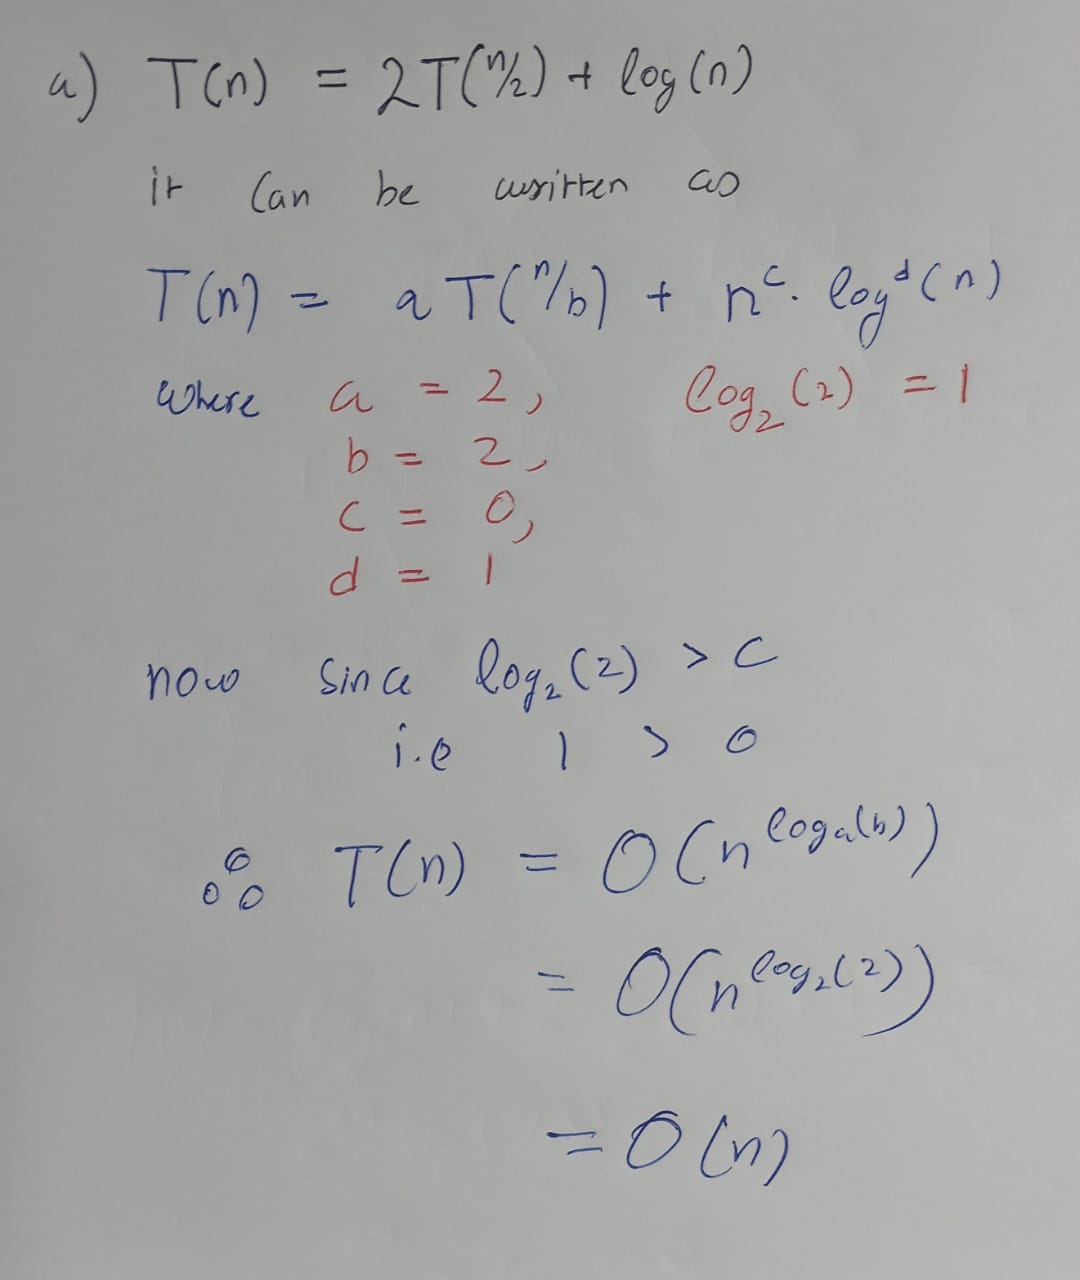 a) T(n) = 2T(n/2) + log(n)
it can be written as
T(n) = a T(n/b) + n^c. log^d(n)
where a = 2, log₂(2) = 1
b = 2,
c = 0,
d = 1
now since log₂(2) > c
i.e 1 > 0
∴ T(n) = O(n^logₐ(b))
= O(n^log₂(2))
= O(n)